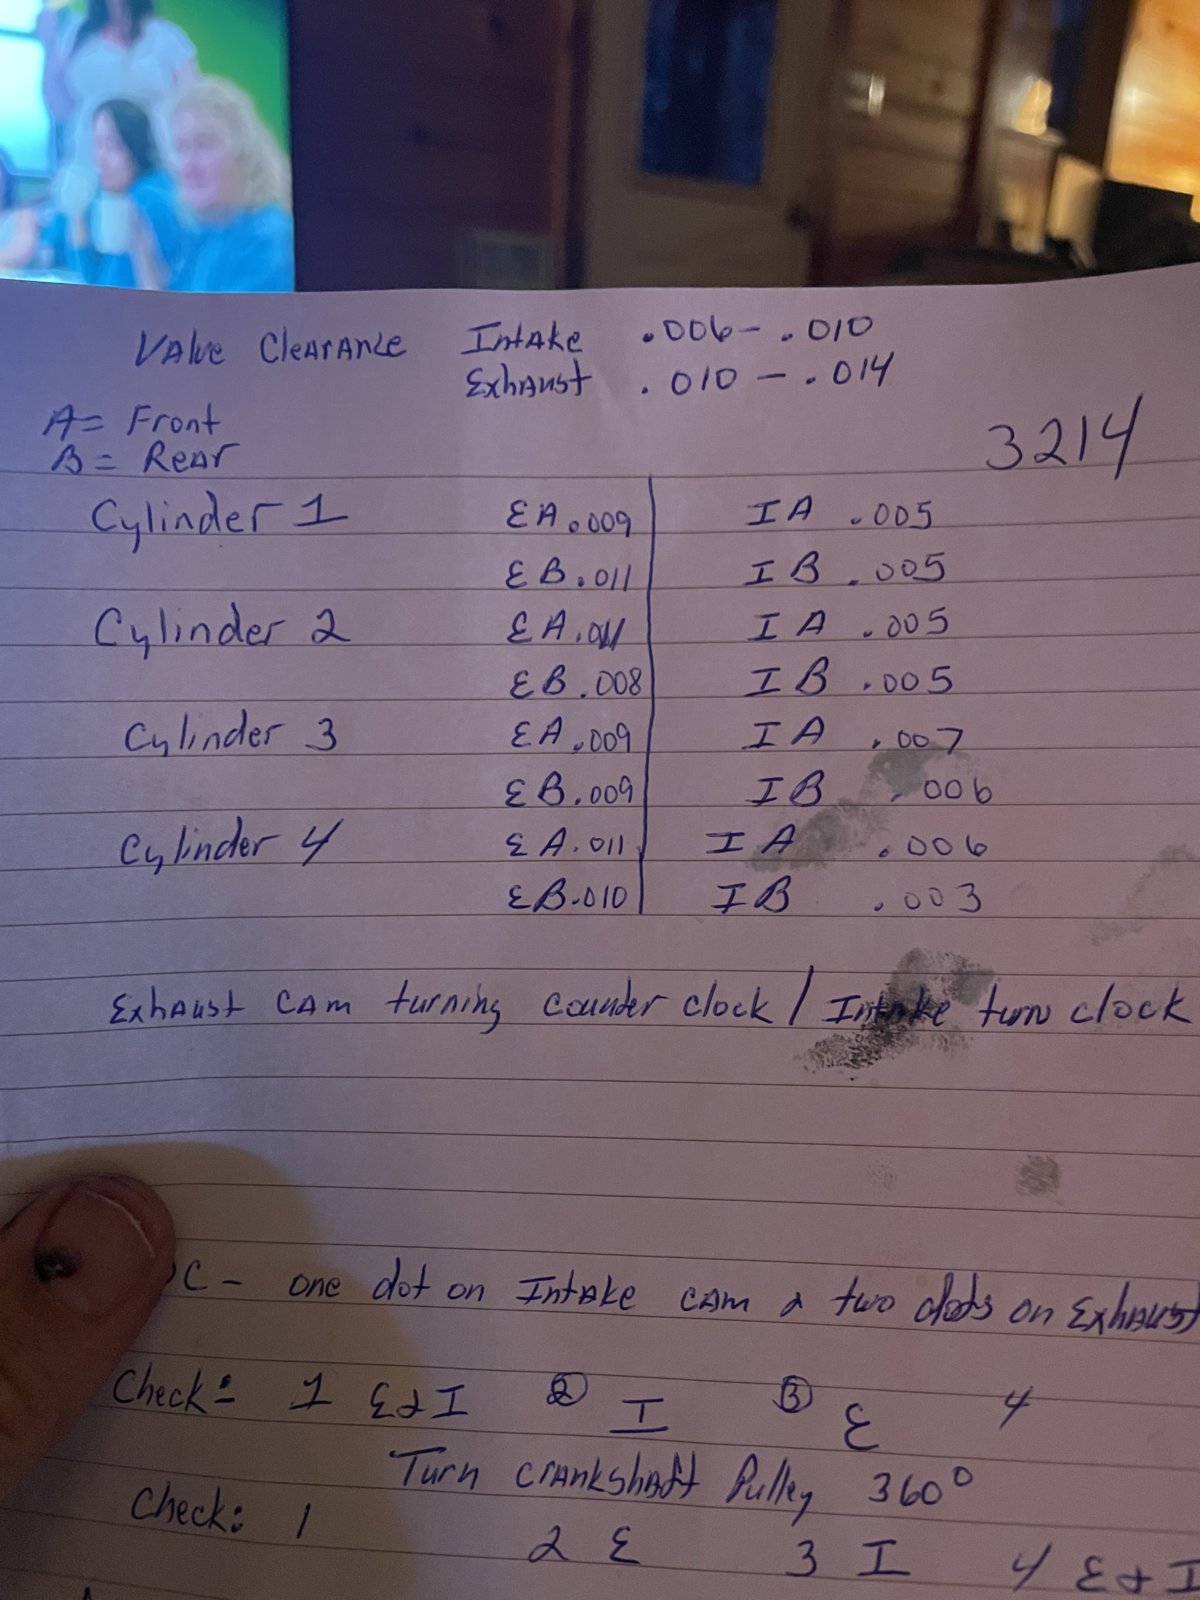 Valve Clearance Intake .006 - .010
Exhaust .010 - .014
A = Front
B = Rear
3214
Cylinder 1 EA .009 IA .005
EB .011 IB .005
Cylinder 2 EA .011 IA .005
EB .008 IB .005
Cylinder 3 EA .009 IA .007
EB .009 IB .006
Cylinder 4 EA .011 IA .006
EB .010 IB .003
Exhaust cam turning counter clock / Intake turn clock
DC - one dot on Intake cam & two dots on Exhaust
Check: 1 E & I 2 I 3 E 4
Turn crankshaft Pulley 360°
Check: 1 2 E 3 I 4 E & I